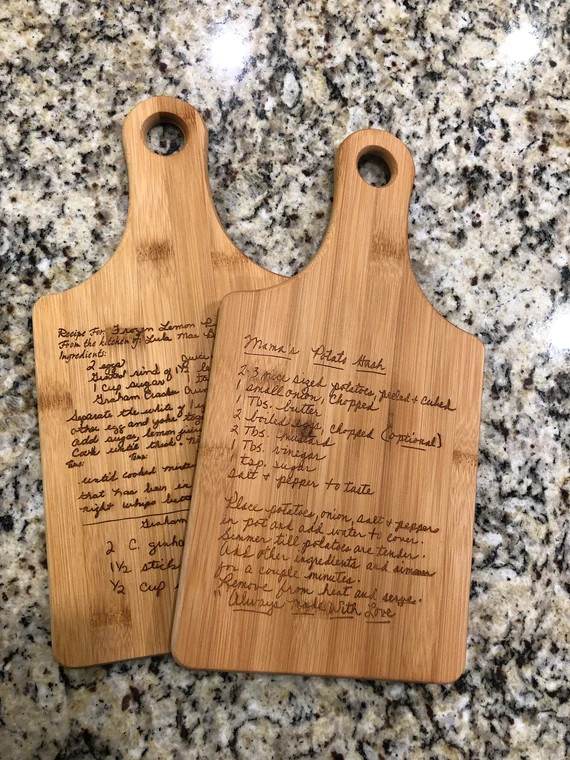 Recipe For: Frozen Lemon
From the kitchen of: Lula Mae
Ingredients:
2 eggs
Grated rind of 1½
1 cup sugar
Graham Cracker
Separate the white of
other egg and yolks
add sugar, lemon juice
Cook until thick
until cooked
that has been in
night whips
Graham
2 C. graham
1½ stick
½ cup
Mama's Potato Hash
2-3 nice sized potatoes, peeled & cubed
1 small onion, chopped
1 Tbs. butter
2 boiled eggs, chopped (optional)
2 Tbs. mustard
1 Tbs. vinegar
1 tsp. sugar
salt & pepper to taste
Place potatoes, onion, salt & pepper
in pot and add water to cover.
Simmer till potatoes are tender.
Add other ingredients and simmer
for a couple minutes.
Remove from heat and serve.
"Always made With Love